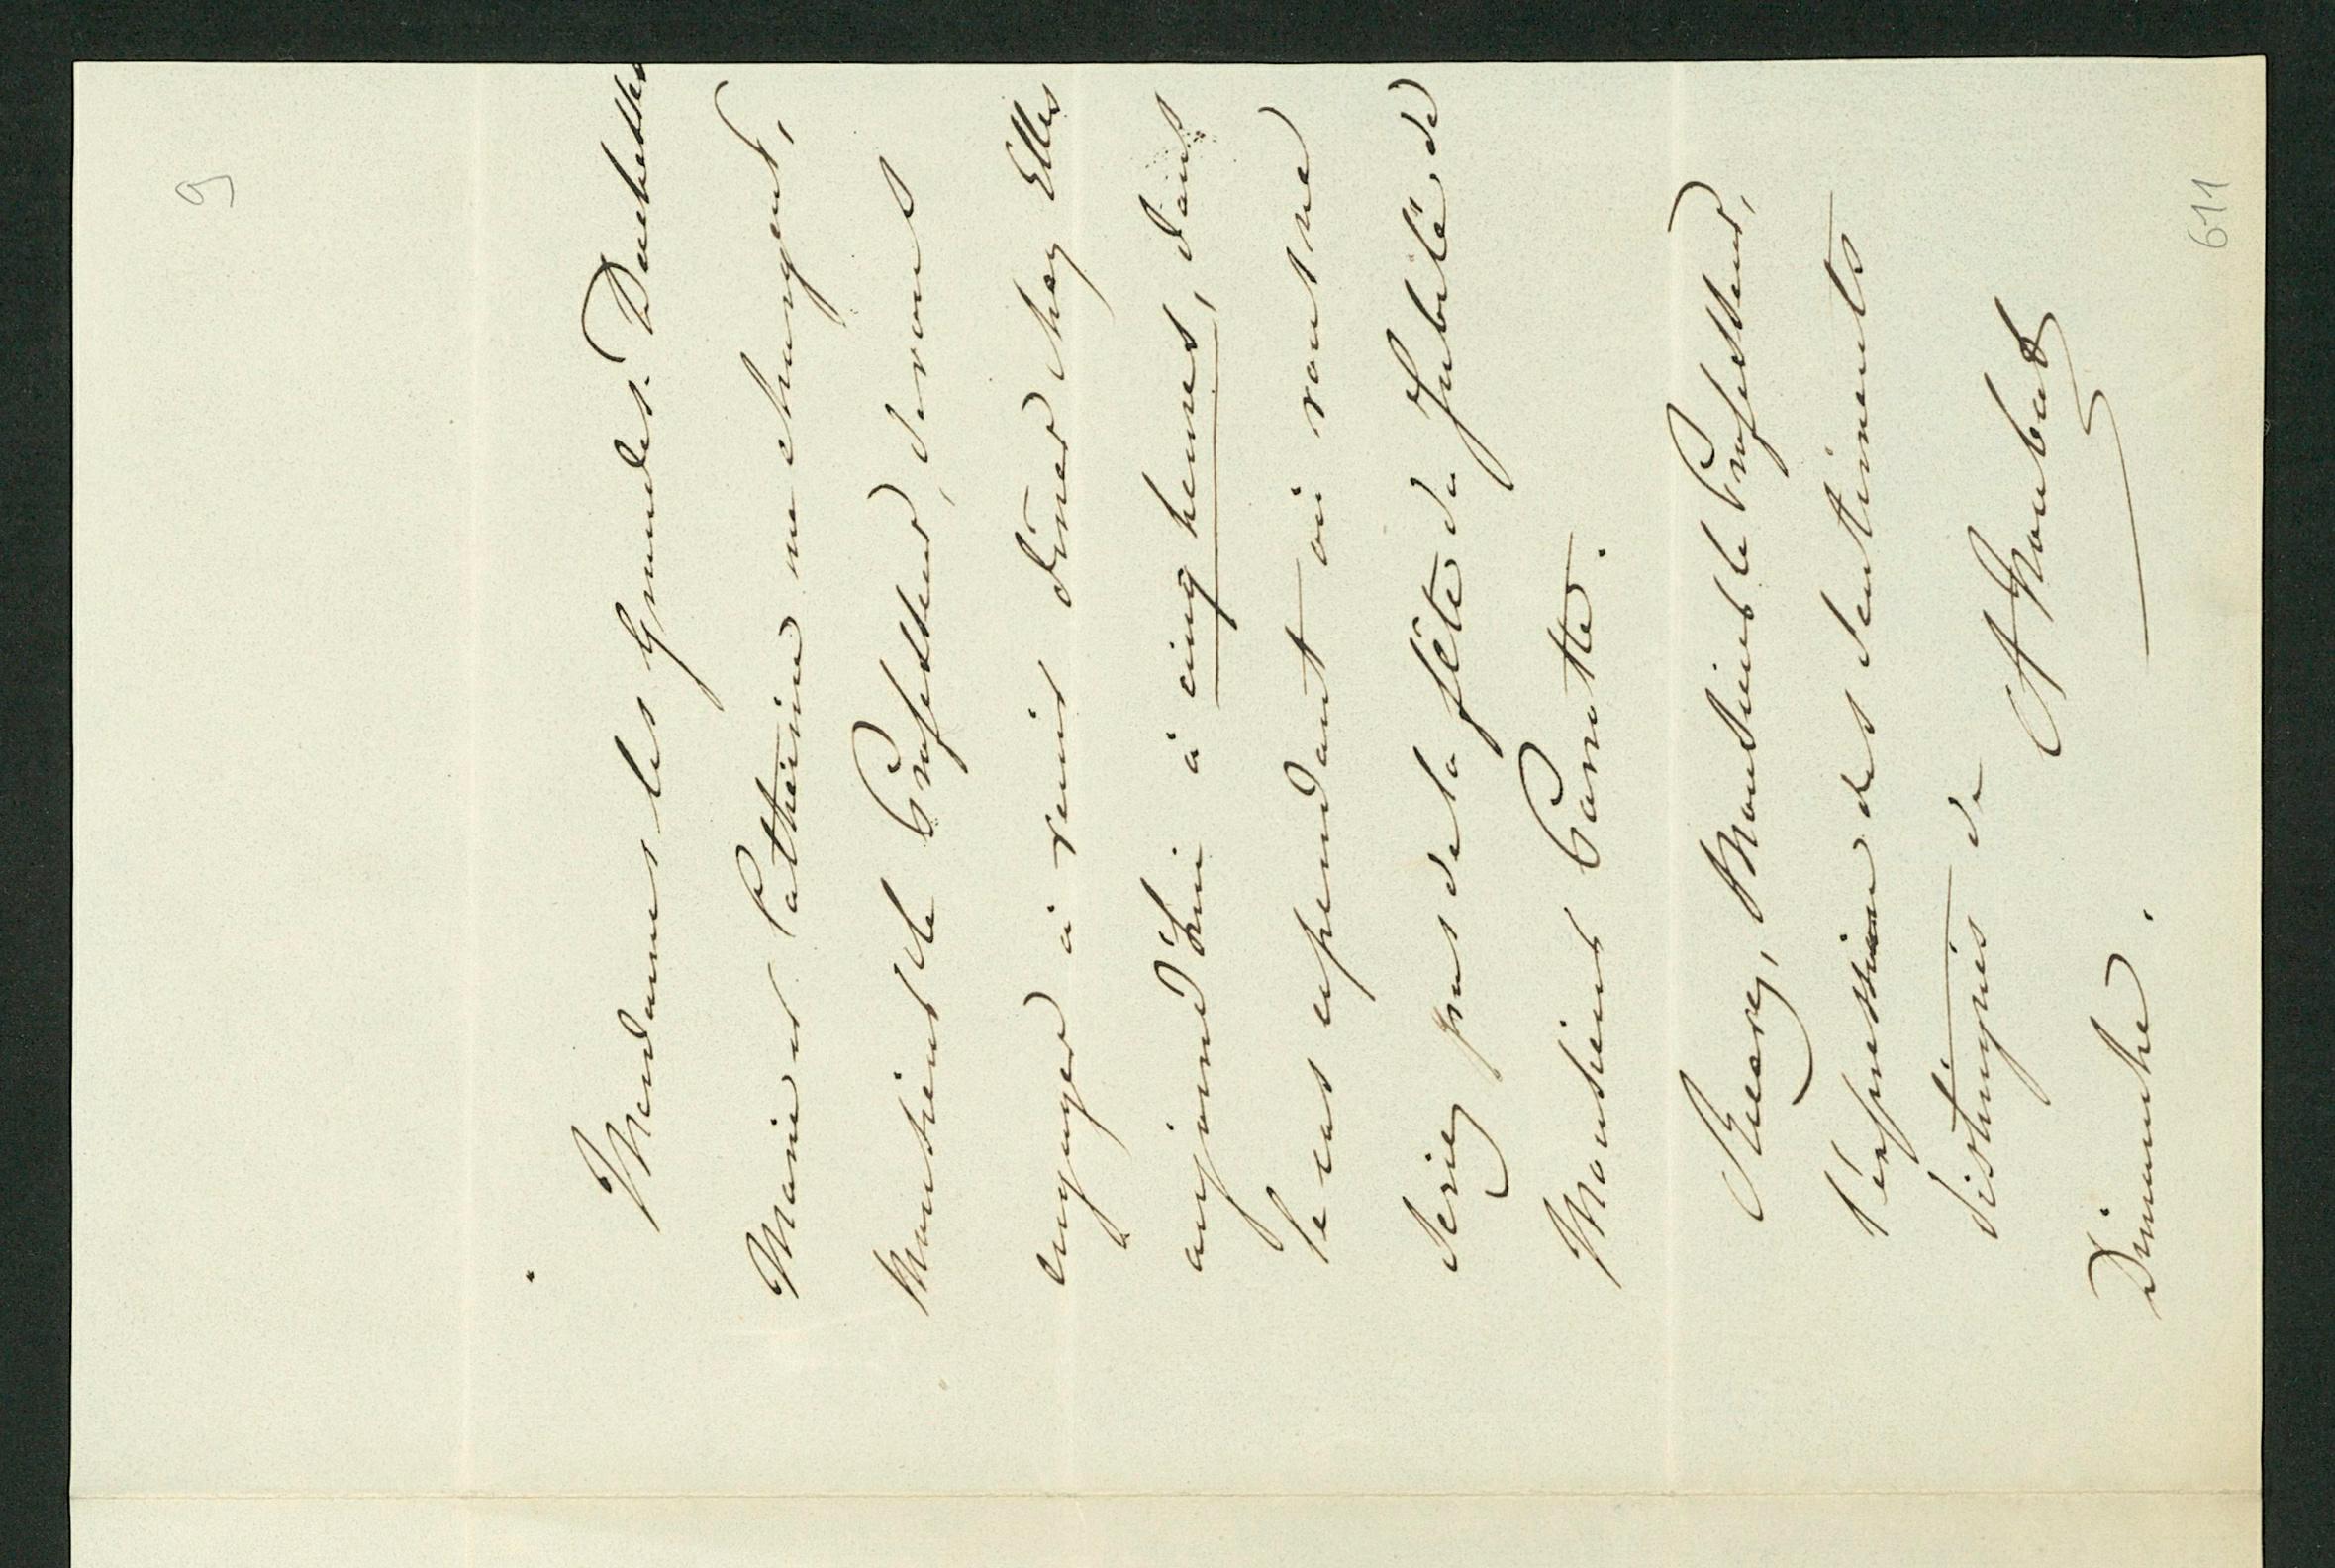 9
Mesdames les Grandes-Duchesses
Marie et Catherine me chargent,
Monsieur le Professeur, de vous
engager à venir dîner chez Elles
aujourd'hui à cinq heures, dans
le cas cependant où vous ne
seriez pas de la fête du Jubilé, de
Monsieur Parrotte.
Recevez, Monsieur le Professeur,
l'expression des sentiments
distingués de
Dimanche.
611